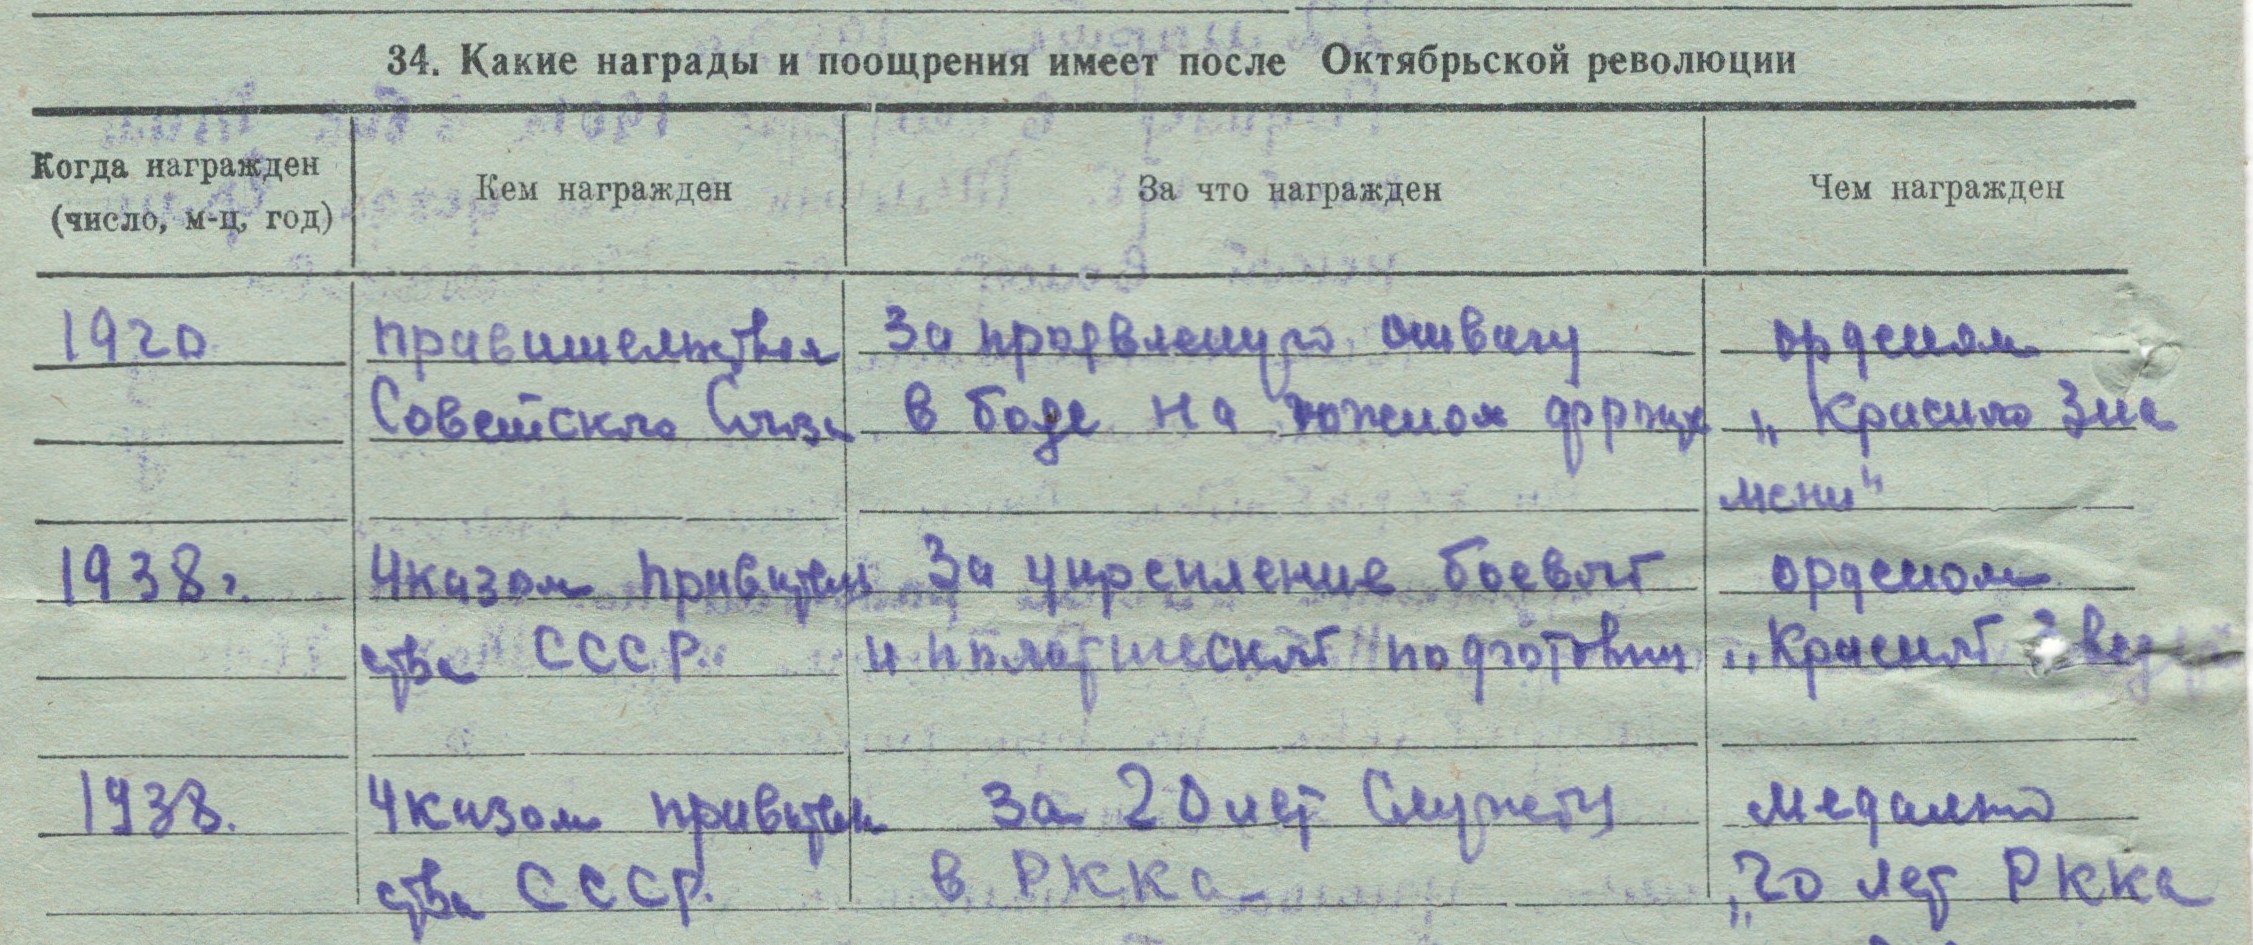 34. Какие награды и поощрения имеет после Октябрьской революции
Когда награжден
(число, м-ц, год)
Кем награжден
За что награжден
Чем награжден
1920 правительством За проявленую отвагу орденом
Советского Союза в бое на южном фронте „Красного Зна
мени"
1938г. Указом правитель За укрепление боевой орденом
ства СССР. и политической подготовки „Красной Звезды
1938. Указом правитель За 20 лет Службы медалью
ства СССР. в РККА „20 лет РККА